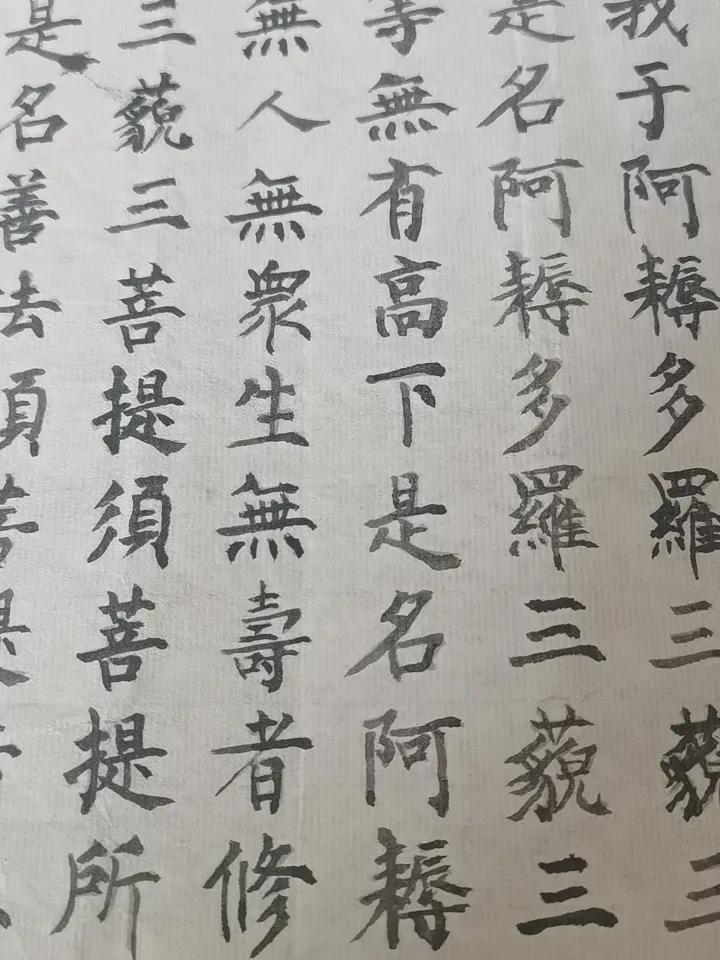 我于阿耨多羅三藐三
是名阿耨多羅三藐三
等無有高下是名阿耨
無人無衆生無壽者修
三藐三菩提須菩提所
是名善法須菩提